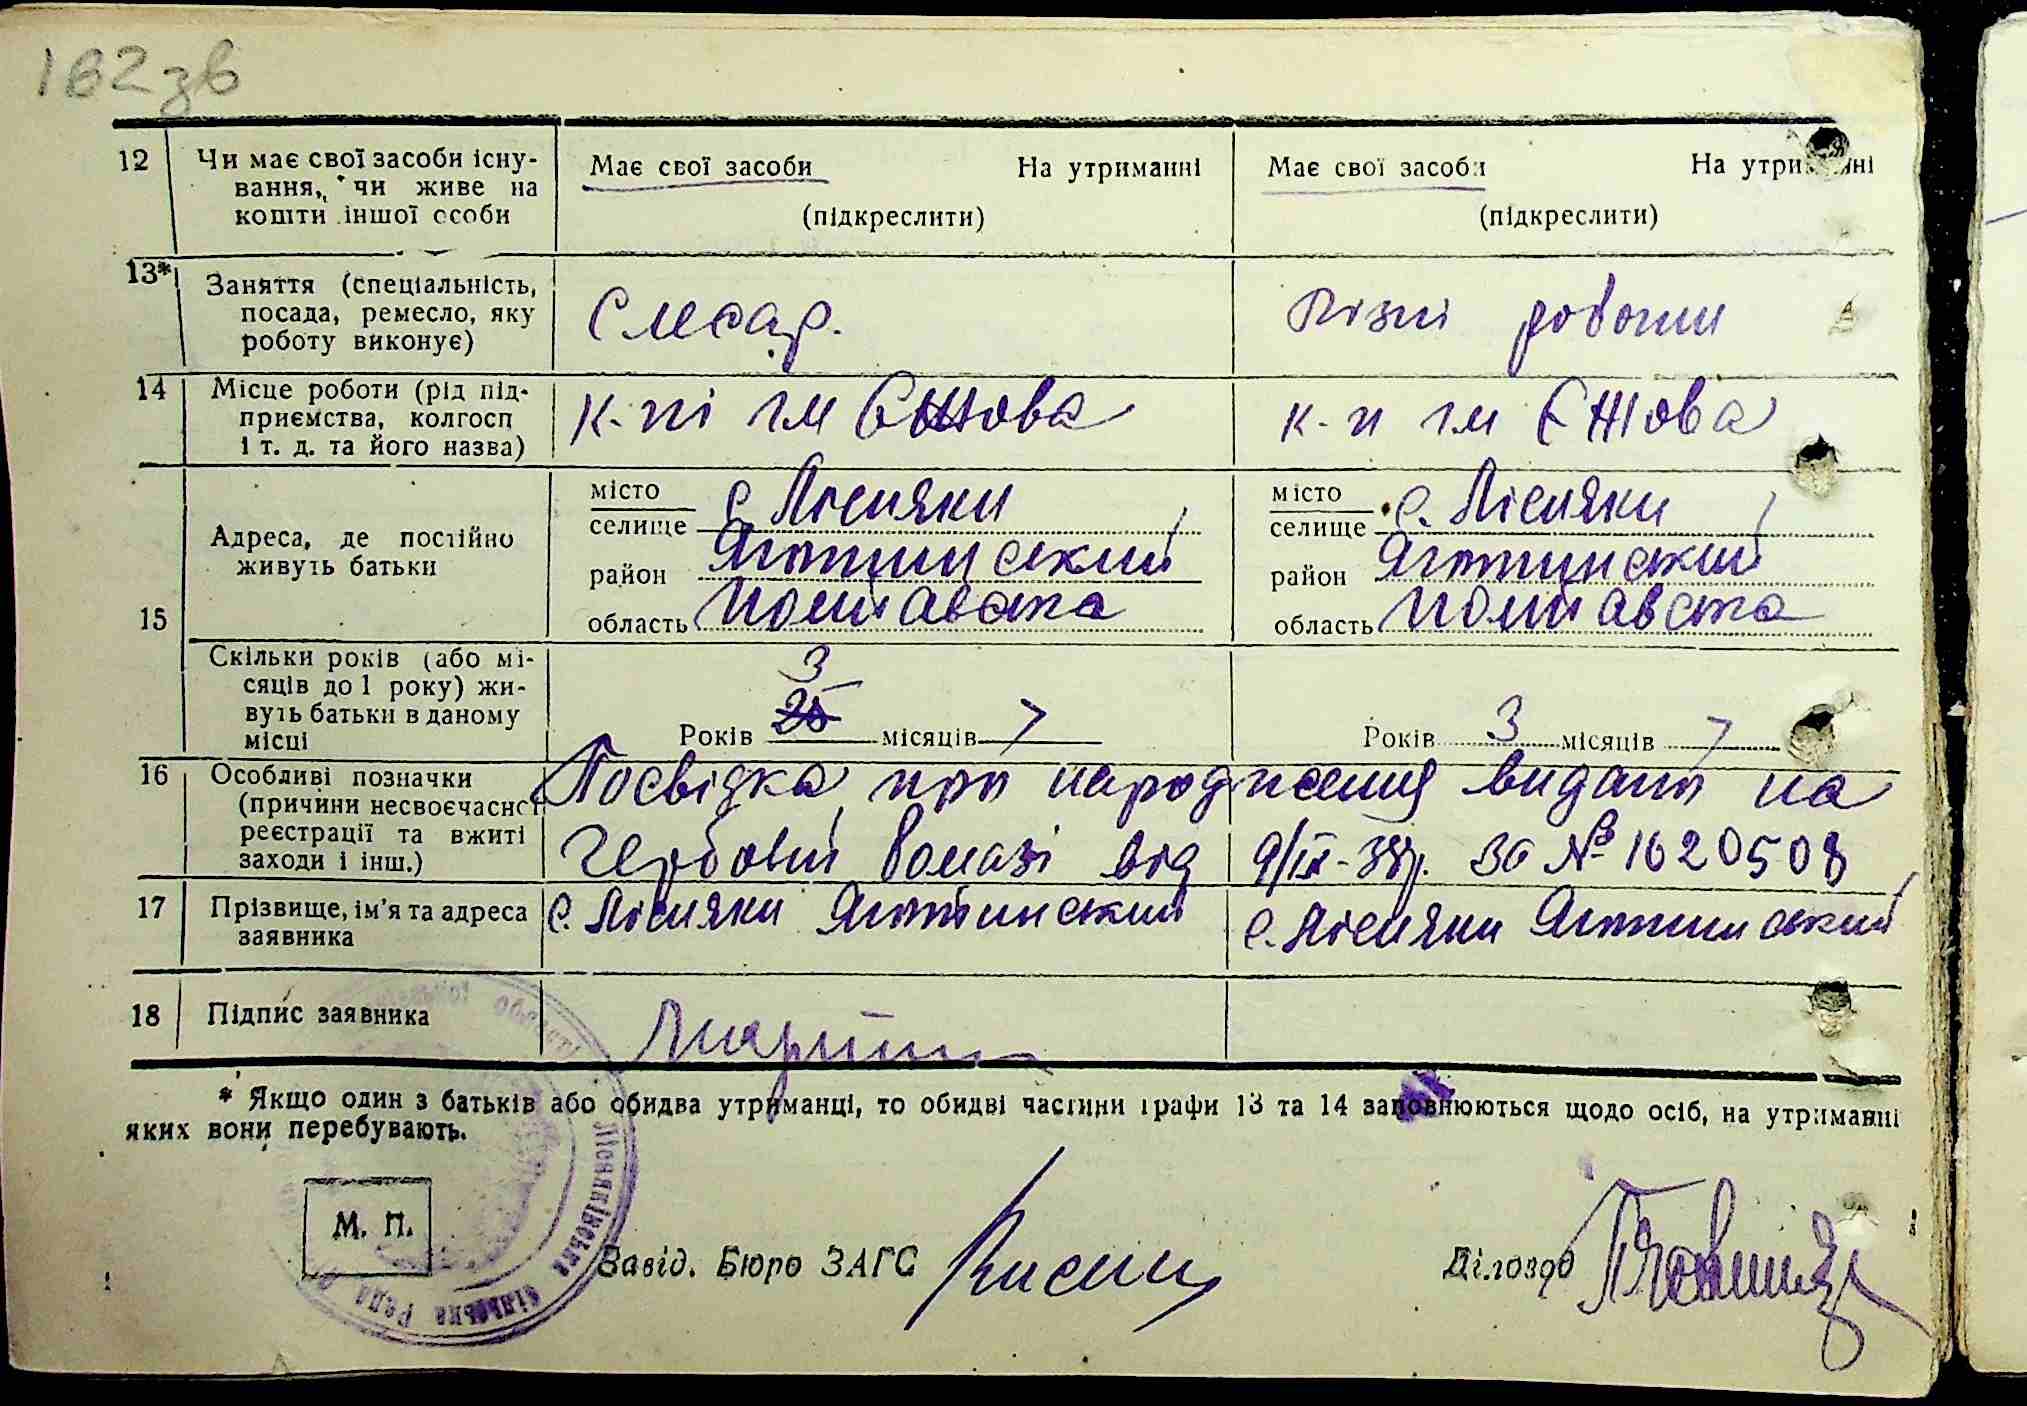 162зв
12 Чи має свої засоби існу-
вання, чи живе на
кошти іншої особи
Має свої засоби На утриманні
(підкреслити)
Має свої засоби На утриманні
(підкреслити)
13* Заняття (спеціальність,
посада, ремесло, яку
роботу виконує)
Слюсар.
Різні роботи
14 Місце роботи (рід під-
приємства, колгосп
і т. д. та його назва)
к-пі ім Єжова
к-п ім Єжова
15 Адреса, де постійно
живуть батьки
місто
селище с. Лісняки
район Яготинський
область Полтавська
місто
селище с. Лісняки
район Яготинський
область Полтавська
Скільки років (або мі-
сяців до 1 року) жи-
вуть батьки в даному
місці
3
Років 25 місяців 7
Років 3 місяців 7
16 Особливі позначки
(причини несвоєчасної
реєстрації та вжиті
заходи і інш.)
Посвідка про народження видана на
гербовій бомазі від 9/IX-38р. за № 1620508
17 Прізвище, ім'я та адреса
заявника
с. Лісняки Яготинський
с. Лісняки Яготинський
18 Підпис заявника
* Якщо один з батьків або обидва утриманці, то обидві частини графи 13 та 14 заповнюються щодо осіб, на утриманні
яких вони перебувають.
М. П.
Завід. Бюро ЗАГС
Діловод
Лісняківська сільська Рада
області